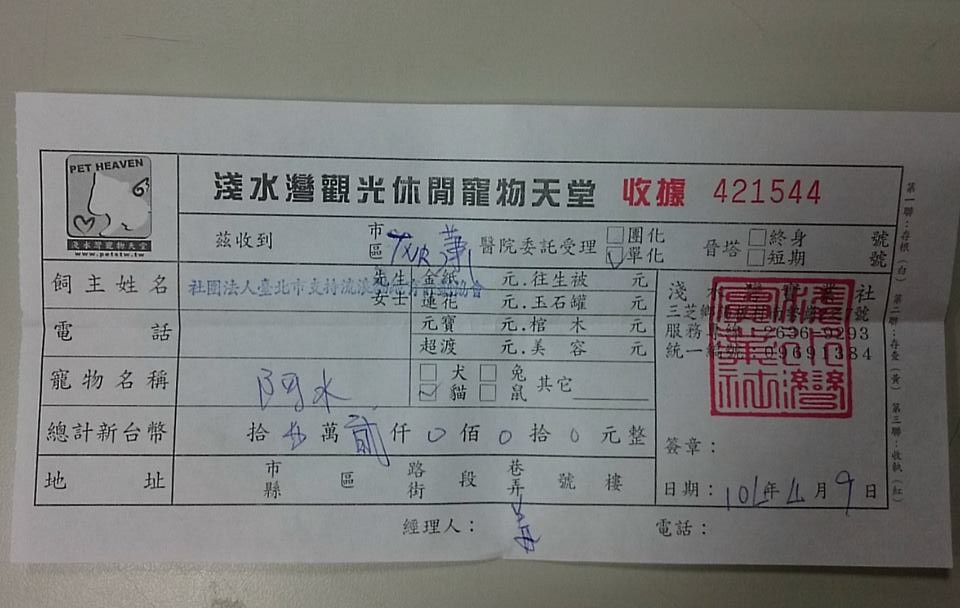 PET HEAVEN
淺水灣寵物天堂
www.petstw.tw
淺水灣觀光休閒寵物天堂 收據 421544
茲收到 市區 醫院委託受理 □團化 □單化 晉塔 □終身 □短期 號 號
飼主姓名 社團法人臺北市支持流浪 協會 先生 女士
金紙 元.往生被 元
蓮花 元.玉石罐 元
電話
元寶 元.棺木 元
超渡 元.美容 元
寵物名稱 阿水 □犬 □兔 其它
☑貓 □鼠
總計新台幣 拾 萬 貳 仟 0 佰 0 拾 0 元整
地址 市縣 區 路街 段 巷弄 號 樓
淺水灣實業社
三芝鄉 號
服務 2636-9293
統一編號 09691384
簽章：
日期：104年4月9日
經理人： 電話：
第一聯：存根（白） 第二聯：存查（黃） 第三聯：收執（紅）